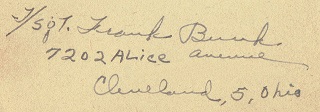 T/Sgt. Frank Bunk
7202 Alice Avenue
Cleveland, 5, Ohio